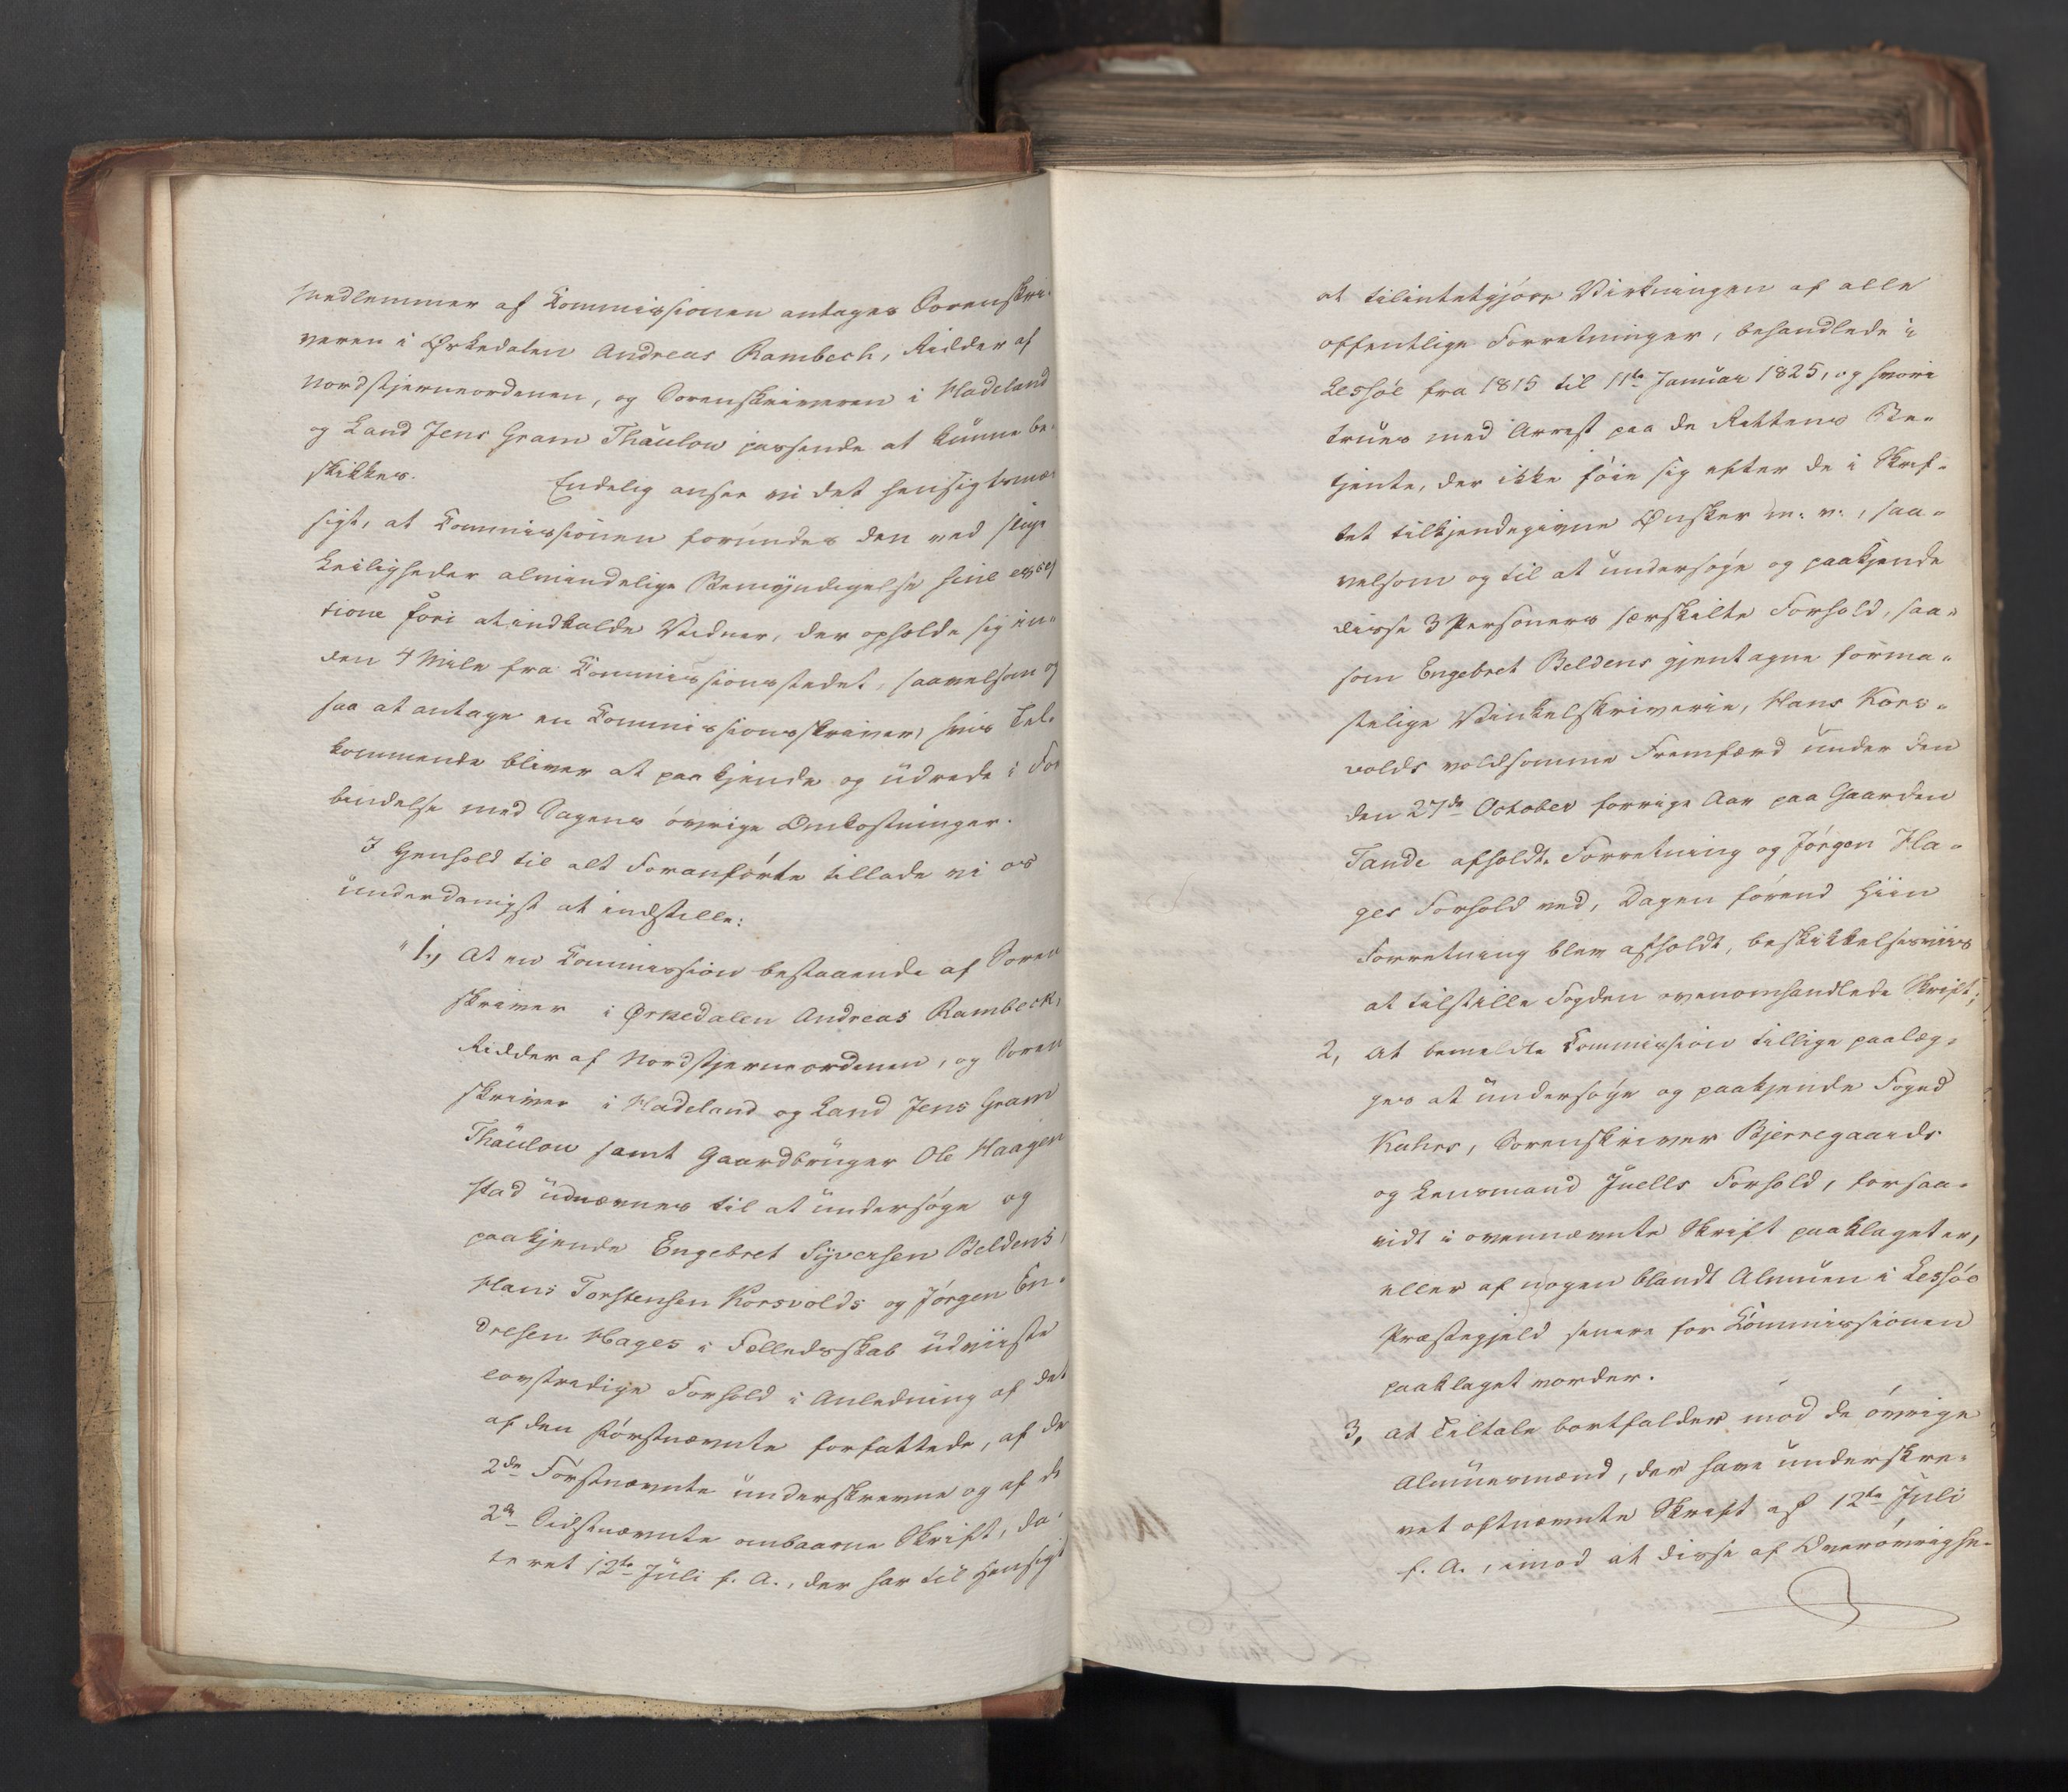 Medlemmer af Commissionen antages Sorenskri-
veren i Ørkedalen Andreas Rambech, Ridder af
Nordstjerneordenen, og Sorenskriveren i Hadeland
og Land Jens Gram Thaulow passende at kunne be-
skikkes. Endelig ansee vi det hensigtsmæs-
sigt, at Commissionen forundes den ved slige
Leiligheder almindelige Bemyndigelse sine excep-
tione fori at indkalde Vidner, der opholde sig in-
den 4 Mile fra Commissionsstedet, saavelsom og
saa at antage en Commissionsskriver, hvis Til-
kommende bliver at paakjende og udrede i For
bindelse med Sagens øvrige Omkostninger.
I Henhold til alt Foranførte tillade vi os
underdanigst at indstille:
" 1., At en Commission bestaaende af Soren
skriver i Ørkedalen Andreas Rambeck,
Ridder af Nordstjerneordenen, og Soren
skriver i Hadeland og Land Jens Gram
Thaulow samt Gaardbruger Ole Haagen
stad udnævnes til at undersøge og
paakjende Engebret Syversen Beldens,
Hans Torstensen Korsvolds og Jørgen En-
dresen Hages i Fælledsskab udviiste
lovstridige Forhold i Anledning af det
af den Førstnævnte forfattede, af de
2de Førstnævnte underskrevne og af de
2de Sidstnævnte ombaarne Skrift, da-
teret 12te Juli f. A., der har til Hensigt
at tilintetgjøre Virkningen af alle
offentlige Forretninger, behandlede i
Lessøe fra 1815 til 11te Januar 1825, og hvori
trues med Arrest paa de Rettens Be-
tjente, der ikke føie sig efter de i Skrif-
tet tilkjendegivne Ønsker m: v:, saa-
velsom og til at undersøge og paakjende
disse 3 Personers særskilte Forhold, saa-
som Engebret Beldens gjentagne forma-
stelige Vinkelskriverie, Hans Kors-
volds voldsomme Fremfærd under den
den 27de October forrige Aar paa Gaarden
Tande afholdte Forretning og Jørgen Ha-
ges Forhold ved, Dagen førend hiin
Forretning blev afholdt, beskikkelsesviis
at tilstille Fogden ovenomhandlede Skrift;
2, at bemeldte Commission tillige paalæg-
ges at undersøge og paakjende Foged
Kuhrs, Sorenskriver Bjerregaards
og Lensmand Juells Forhold, forsaa-
vidt i ovennævnte Skrift paaklaget er,
eller af nogen blandt Almuen i Lessøe
Præstegjeld senere for Commissionen
paaklaget vorder.
3, at Tiltale bortfalder mod de øvrige
Almuesmænd, der have underskre-
vet oftnævnte Skrift af 12te Juli
f. A., imod at disse af Overøvrighe-